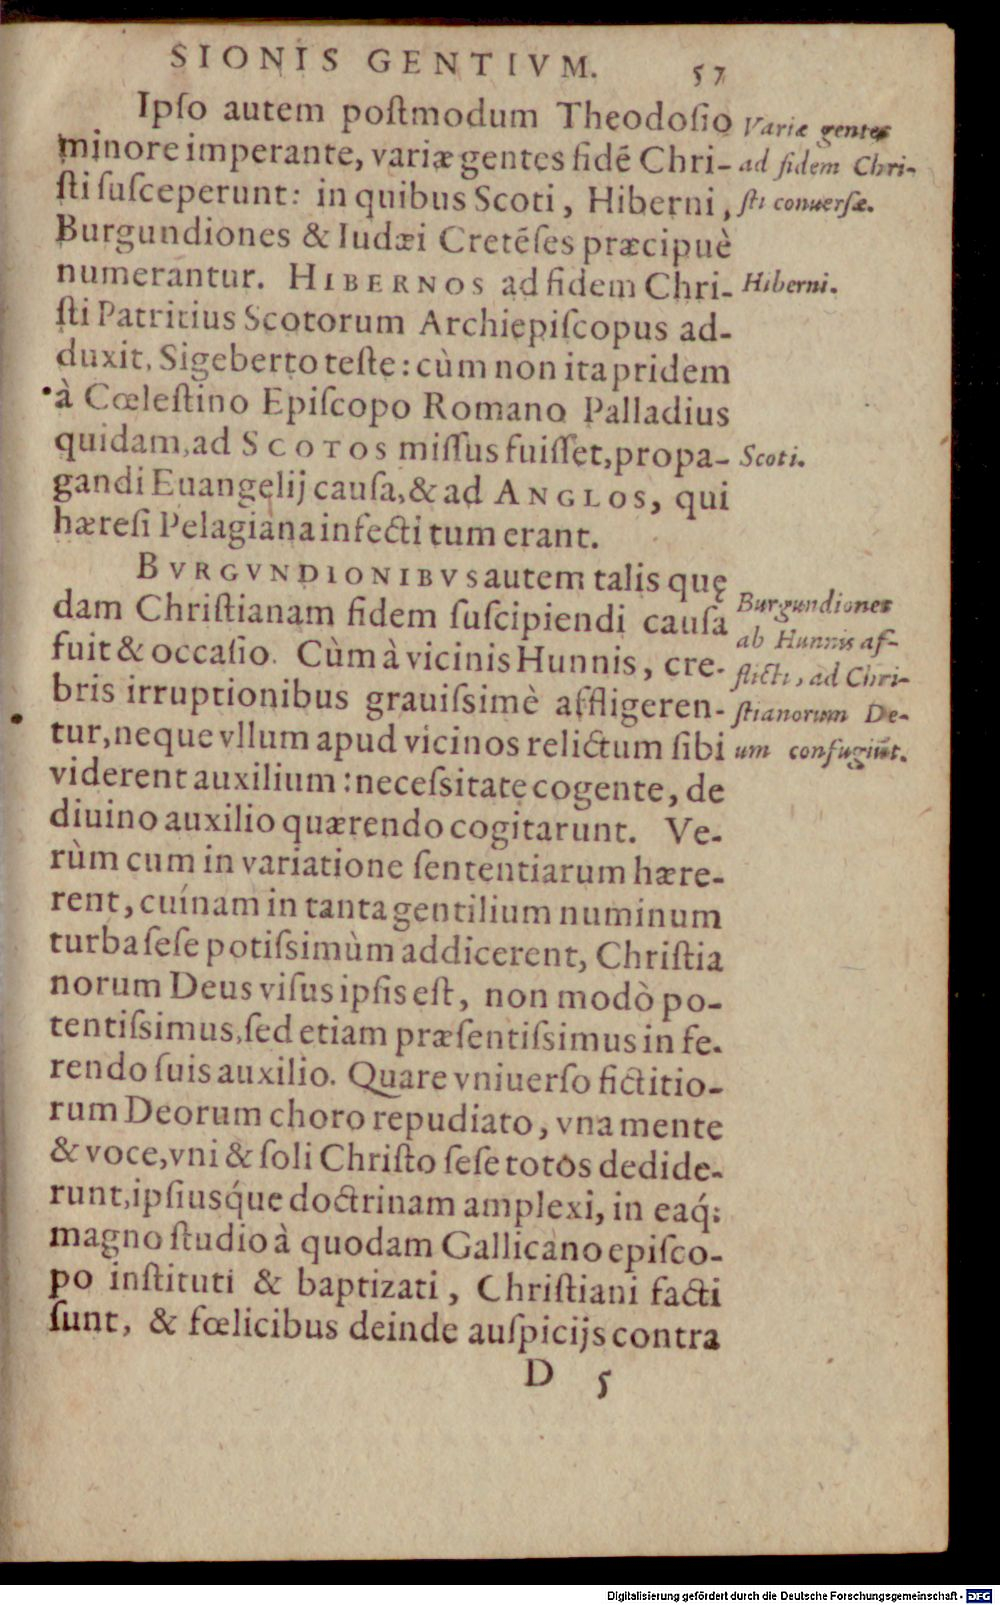 SIONIS GENTIVM. 57
Ipſo autem poſtmodum Theodoſio
minore imperante, variæ gentes fidē Chri-
ſti ſuſceperunt: in quibus Scoti, Hiberni,
Burgundiones & Iudæi Cretēſes præcipuè
numerantur. HIBERNOS ad fidem Chri-
ſti Patritius Scotorum Archiepiſcopus ad-
duxit, Sigeberto teſte: cùm non ita pridem
à Cœleſtino Epiſcopo Romano Palladius
quidam, ad SCOTOS miſſus fuiſſet, propa-
gandi Euangelij cauſa, & ad ANGLOS, qui
hæreſi Pelagiana infecti tum erant.
BVRGVNDIONIBVS autem talis quę
dam Chriſtianam fidem ſuſcipiendi cauſa
fuit & occaſio. Cùm à vicinis Hunnis, cre-
bris irruptionibus grauiſsimè affligeren-
tur, neque vllum apud vicinos relictum ſibi
viderent auxilium: neceſsitate cogente, de
diuino auxilio quærendo cogitarunt. Ve-
rùm cum in variatione ſententiarum hære-
rent, cuínam in tanta gentilium numinum
turba ſeſe potiſsimùm addicerent, Chriſtia
norum Deus viſus ipſis eſt, non modò po-
tentiſsimus, ſed etiam præſentiſsimus in fe-
rendo ſuis auxilio. Quare vniuerſo fictitio-
rum Deorum choro repudiato, vna mente
& voce, vni & ſoli Chriſto ſeſe totos dedide-
runt, ipſiusq́ue doctrinam amplexi, in eaq́;
magno ſtudio à quodam Gallicano epiſco-
po inſtituti & baptizati, Chriſtiani facti
ſunt, & fœlicibus deinde auſpicijs contra
D 5
Variæ gentes
ad fidem Chri-
ſti conuerſæ.
Hiberni.
Scoti.
Burgundiones
ab Hunnis af-
flicti, ad Chri-
ſtianorum De-
um confugiūt.
Digitalisierung gefördert durch die Deutsche Forschungsgemeinschaft - DFG